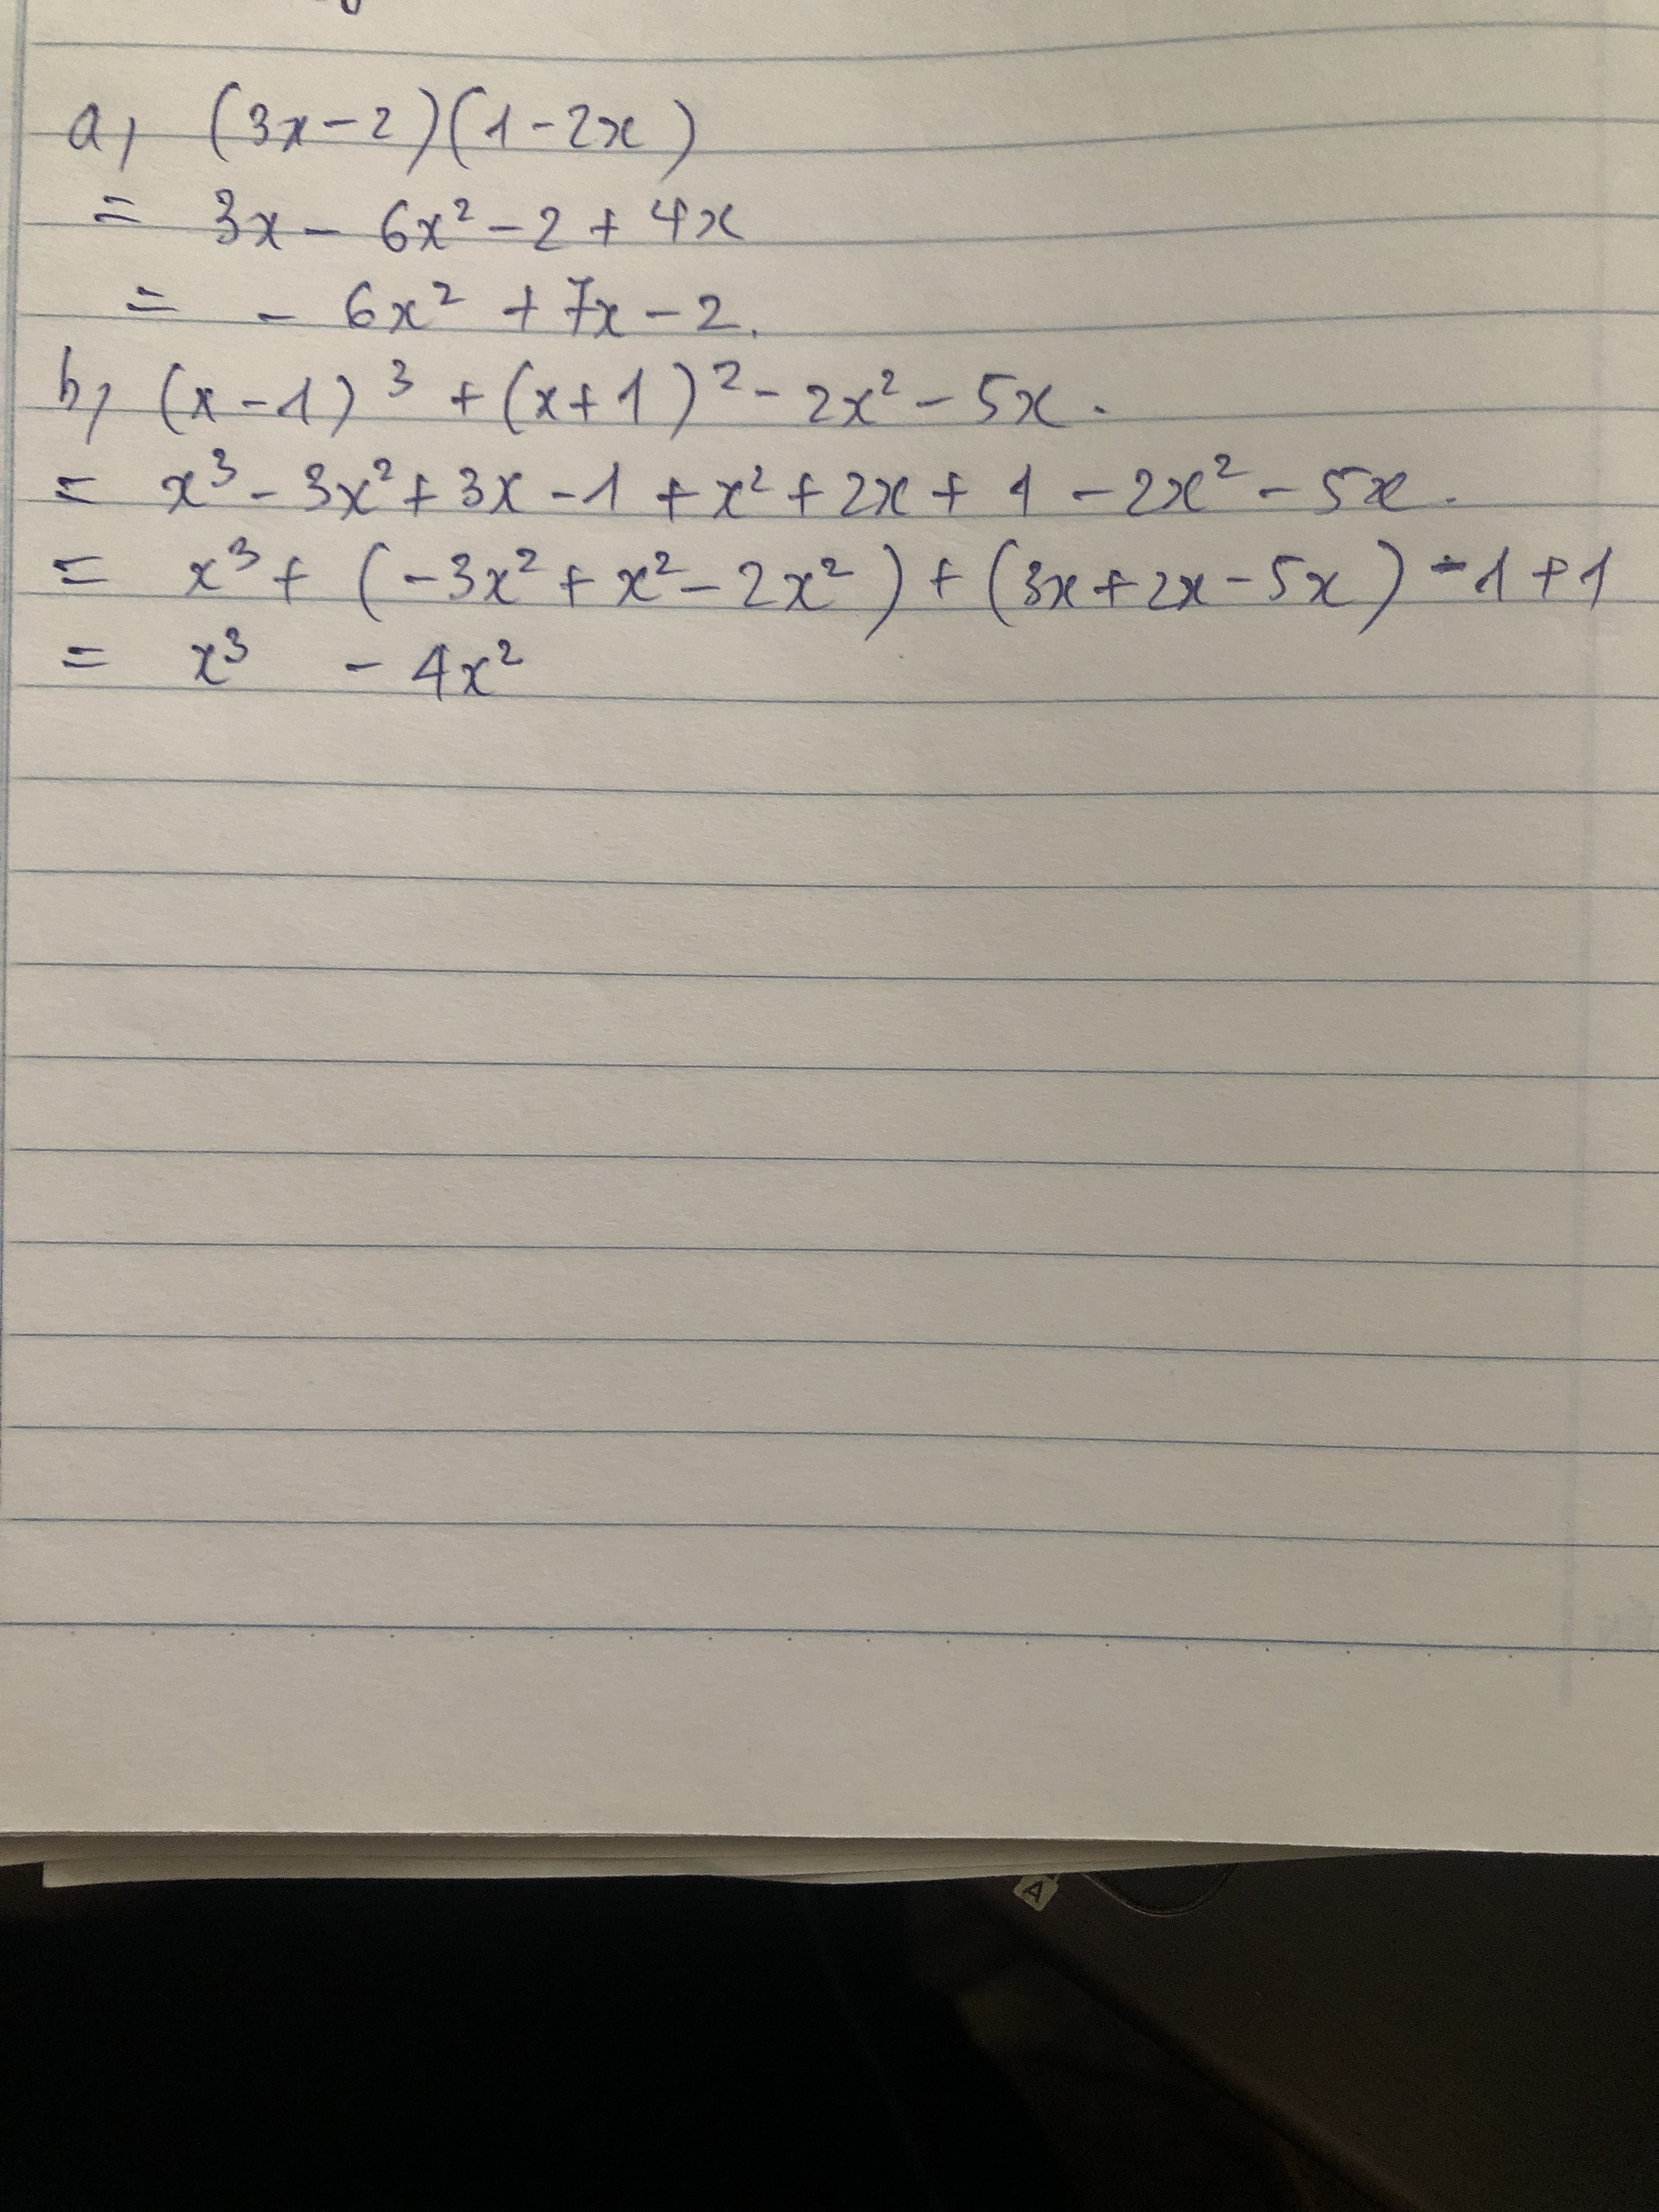 a, (3x-2)(1-2x)
= 3x - 6x² - 2 + 4x
= - 6x² + 7x - 2.
b, (x-1)³ + (x+1)² - 2x² - 5x.
= x³ - 3x² + 3x - 1 + x² + 2x + 1 - 2x² - 5x.
= x³ + (-3x² + x² - 2x²) + (3x + 2x - 5x) - 1 + 1
= x³ - 4x²
A